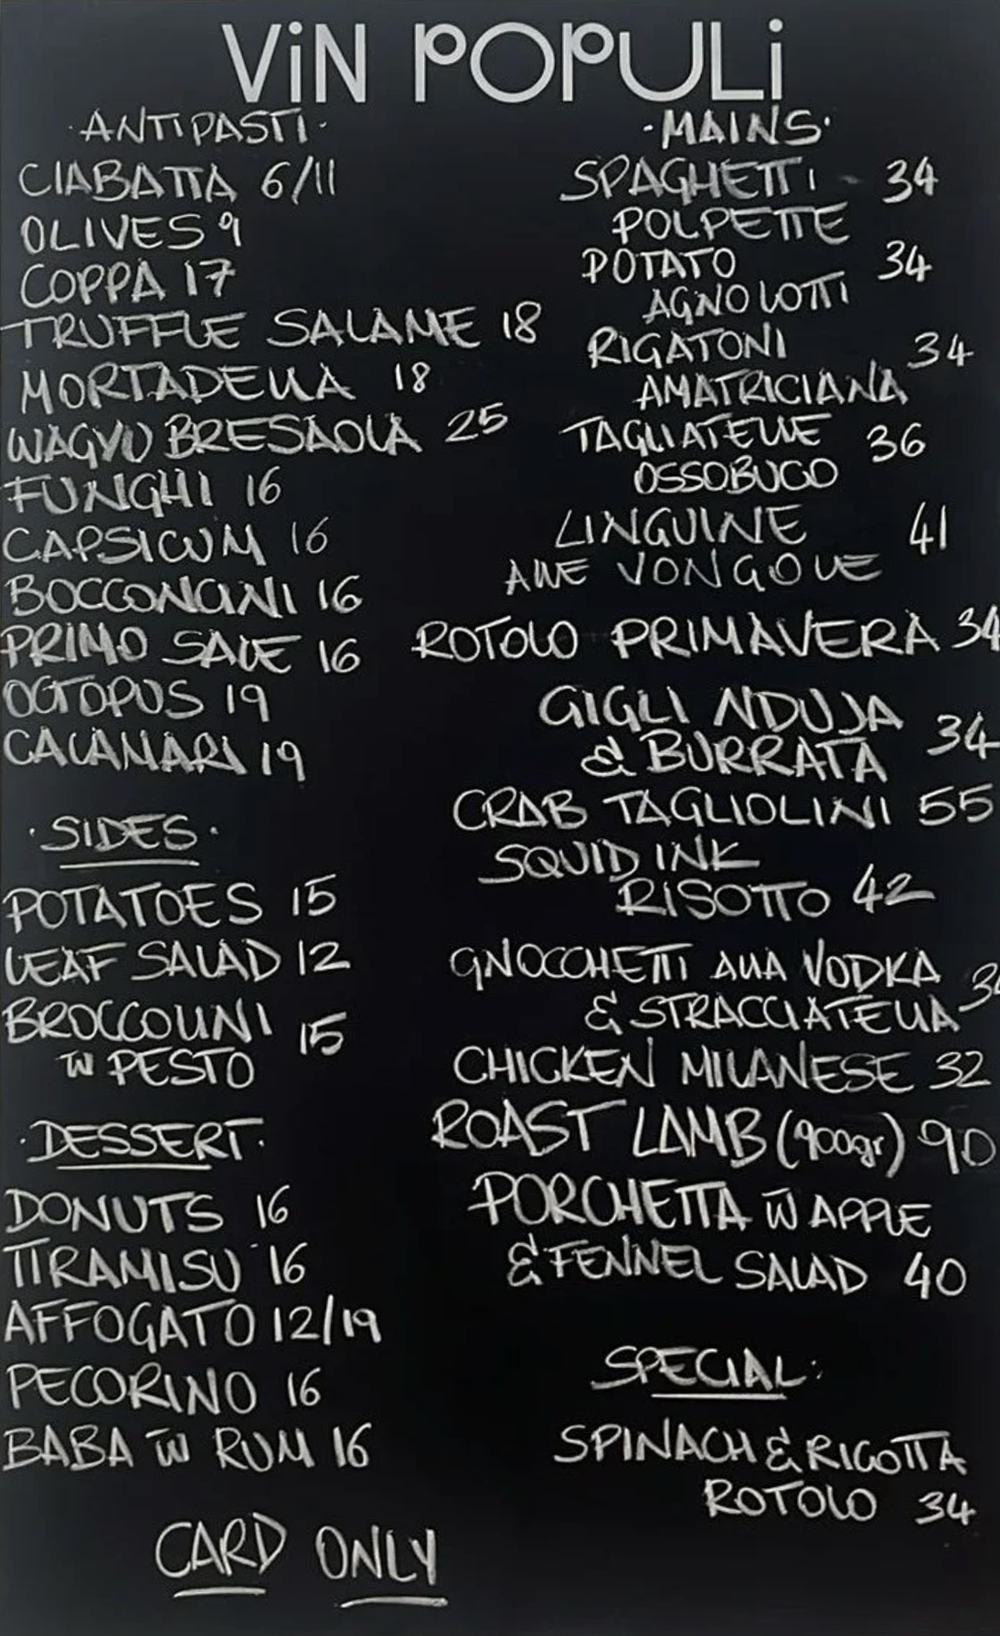 ViN POPULi
·ANTIPASTI·
CIABATTA 6/11
OLIVES 9
COPPA 17
TRUFFLE SALAME 18
MORTADELLA 18
WAGYU BRESAOLA 25
FUNGHI 16
CAPSICUM 16
BOCCONCINI 16
PRIMO SALE 16
OCTOPUS 19
CALAMARI 19
·SIDES·
POTATOES 15
LEAF SALAD 12
BROCCOLINI 15
W PESTO
·DESSERT·
DONUTS 16
TIRAMISU 16
AFFOGATO 12/19
PECORINO 16
BABA W RUM 16
CARD ONLY
·MAINS·
SPAGHETTI 34
POLPETTE
POTATO 34
AGNOLOTTI
RIGATONI 34
AMATRICIANA
TAGLIATELLE 36
OSSOBUCO
LINGUINE 41
ALLE VONGOLE
ROTOLO PRIMAVERA 34
GIGLI NDUJA 34
& BURRATA
CRAB TAGLIOLINI 55
SQUID INK
RISOTTO 42
GNOCCHETTI ALLA VODKA 34
& STRACCIATELLA
CHICKEN MILANESE 32
ROAST LAMB (900gr) 90
PORCHETTA W APPLE
& FENNEL SALAD 40
SPECIAL:
SPINACH & RICOTTA
ROTOLO 34